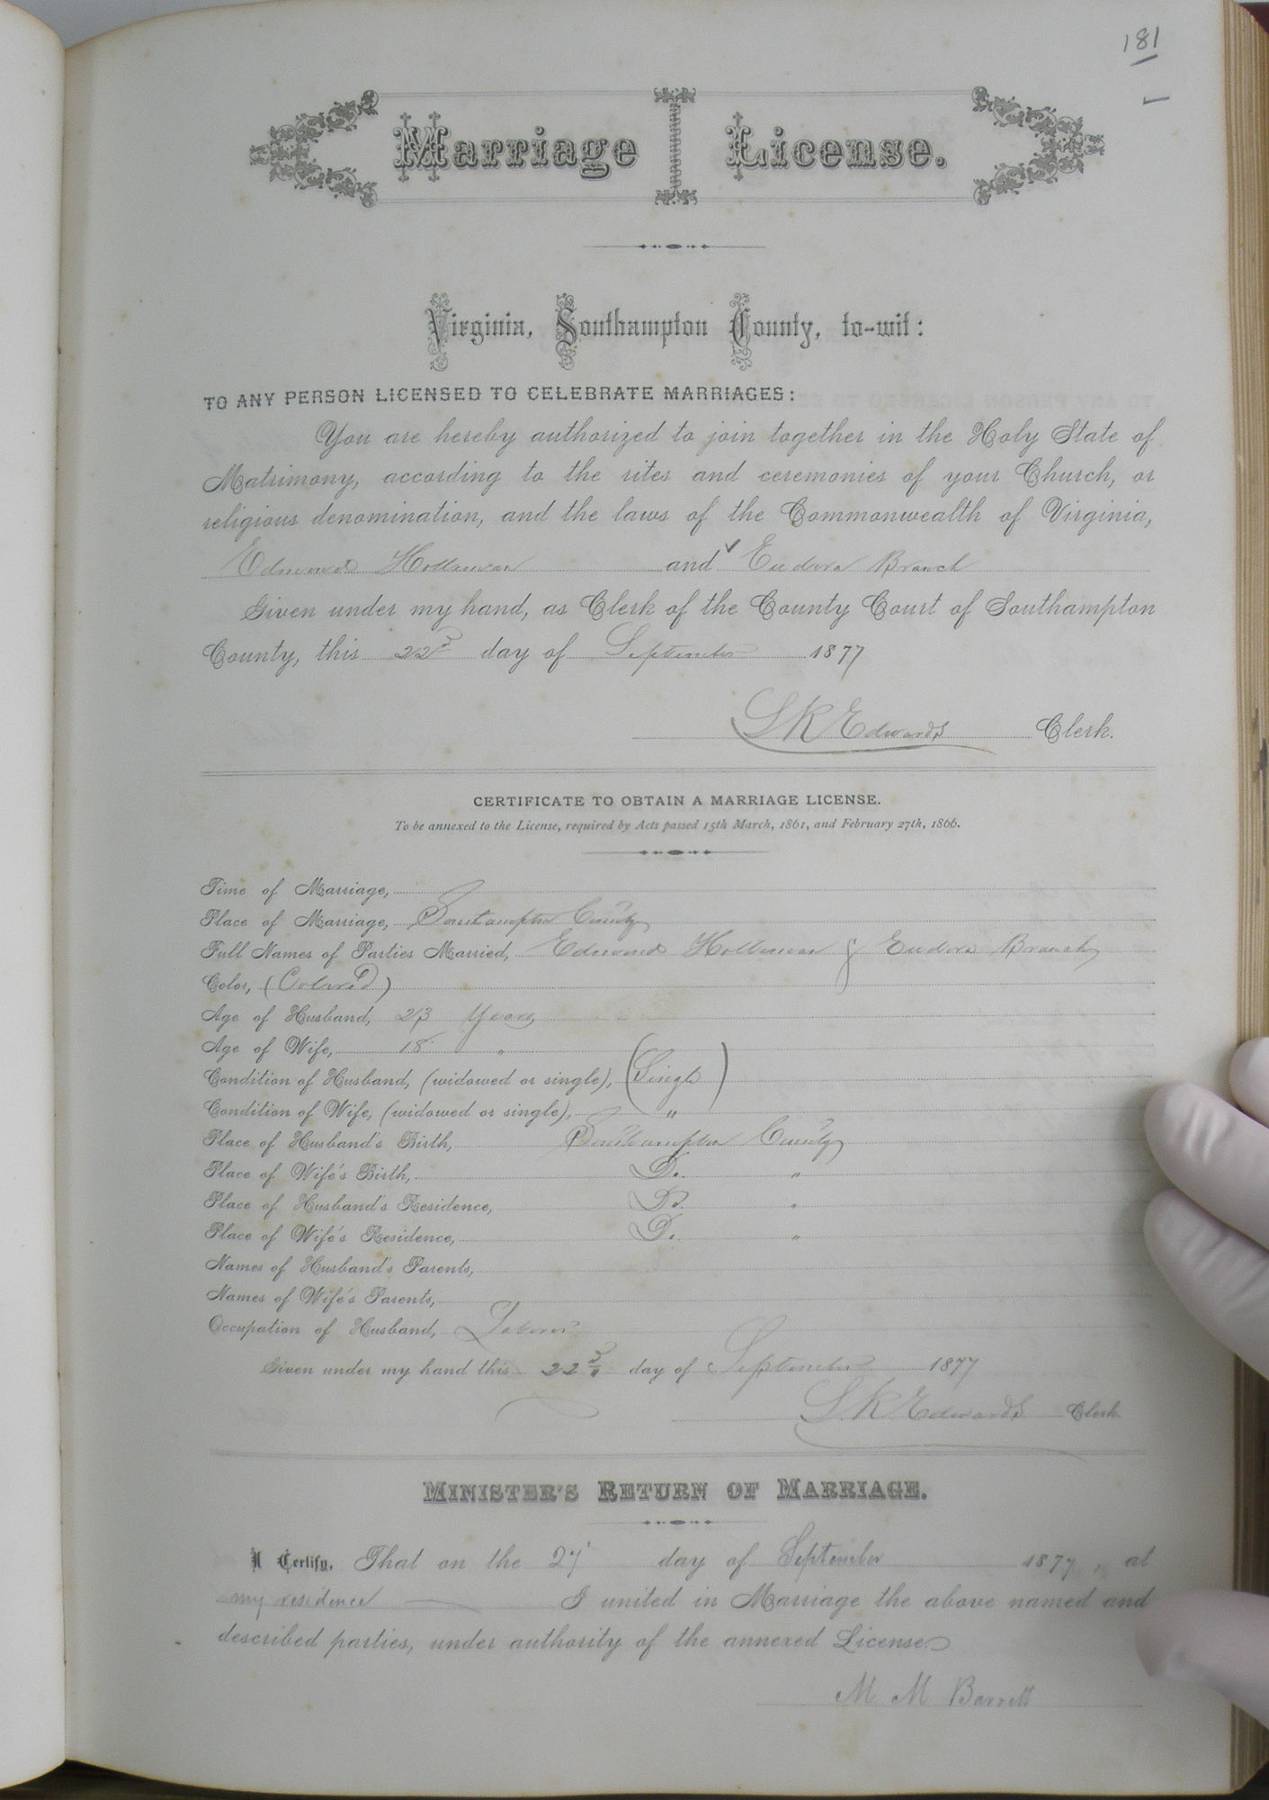 181
Marriage License.
Virginia, Southampton County, to-wit:
TO ANY PERSON LICENSED TO CELEBRATE MARRIAGES:
You are hereby authorized to join together in the Holy State of
Matrimony, according to the rites and ceremonies of your Church, or
religious denomination, and the laws of the Commonwealth of Virginia,
Edmond Holloman and Eudora Branch
Given under my hand, as Clerk of the County Court of Southampton
County, this 22d day of September 1877
L R Edwards Clerk.
CERTIFICATE TO OBTAIN A MARRIAGE LICENSE.
To be annexed to the License, required by Acts passed 15th March, 1861, and February 27th, 1866.
Time of Marriage,
Place of Marriage, Southampton County
Full Names of Parties Married, Edmond Holloman & Eudora Branch
Color, (Colored)
Age of Husband, 23 Years
Age of Wife, 18 "
Condition of Husband, (widowed or single), (Single)
Condition of Wife, (widowed or single), "
Place of Husband's Birth, Southampton County
Place of Wife's Birth, Do. "
Place of Husband's Residence, Do. "
Place of Wife's Residence, Do. "
Names of Husband's Parents,
Names of Wife's Parents,
Occupation of Husband, Laborer
Given under my hand this 22d day of September 1877
L R Edwards Clerk
MINISTER'S RETURN OF MARRIAGE.
I Certify, That on the 27 day of September 1877, at
my residence I united in Marriage the above named and
described parties, under authority of the annexed License.
M M Barrett